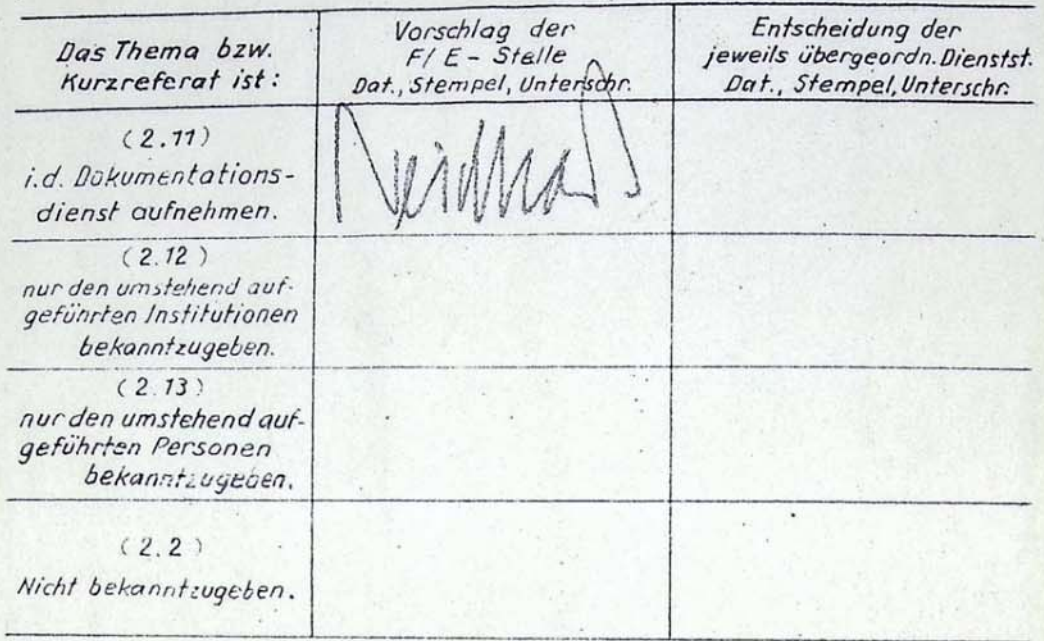 Das Thema bzw.
Kurzreferat ist:
Vorschlag der
F/E - Stelle
Dat., Stempel, Unterschr.
Entscheidung der
jeweils übergeordn. Dienstst.
Dat., Stempel, Unterschr.
(2.11)
i.d. Dokumentations-
dienst aufnehmen.
(2.12)
nur den umstehend auf-
geführten Institutionen
bekanntzugeben.
(2.13)
nur den umstehend auf-
geführten Personen
bekanntzugeben.
(2.2)
Nicht bekanntzugeben.